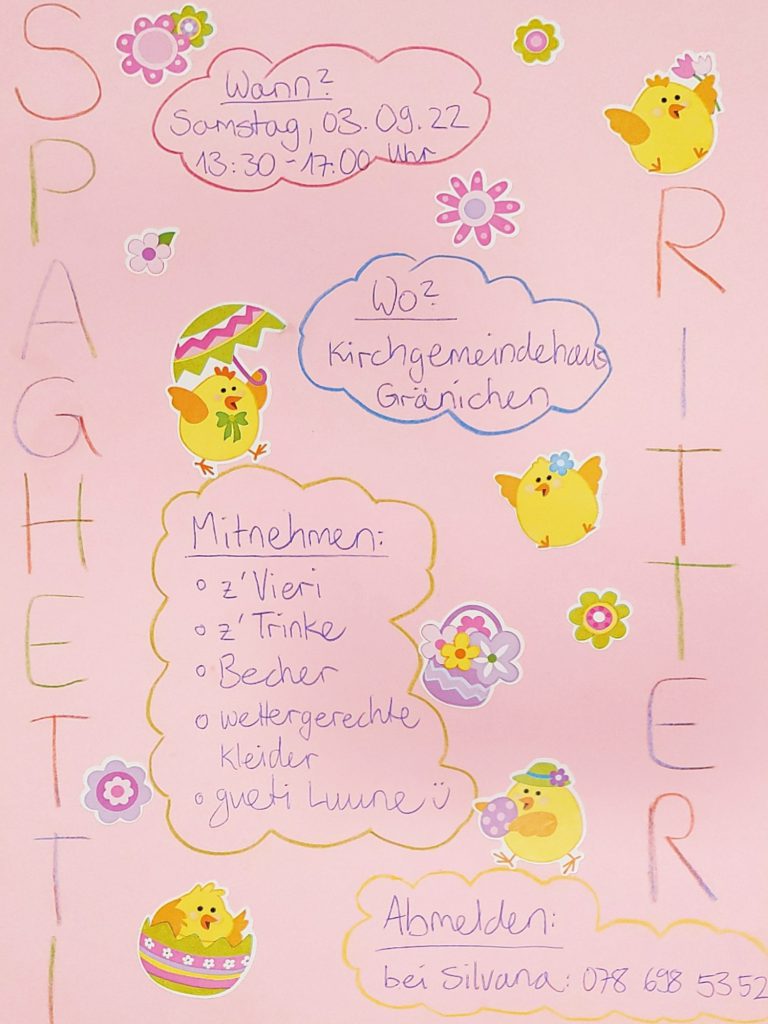 SPAGHETTI
RITTER
Wann?
Samstag, 03.09.22
13:30-17:00 Uhr
Wo?
Kirchgemeindehaus
Gränichen
Mitnehmen:
o z'Vieri
o z'Trinke
o Becher
o wettergerechte
Kleider
o gueti Luune ü
Abmelden:
bei Silvana: 078 698 53 52